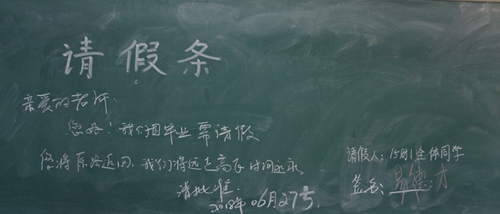 请假条
亲爱的老师:
您好!我们因毕业需请假
假将 我们将 时间
请批准
2018年06月27号
请假人:1501全体同学
签名: